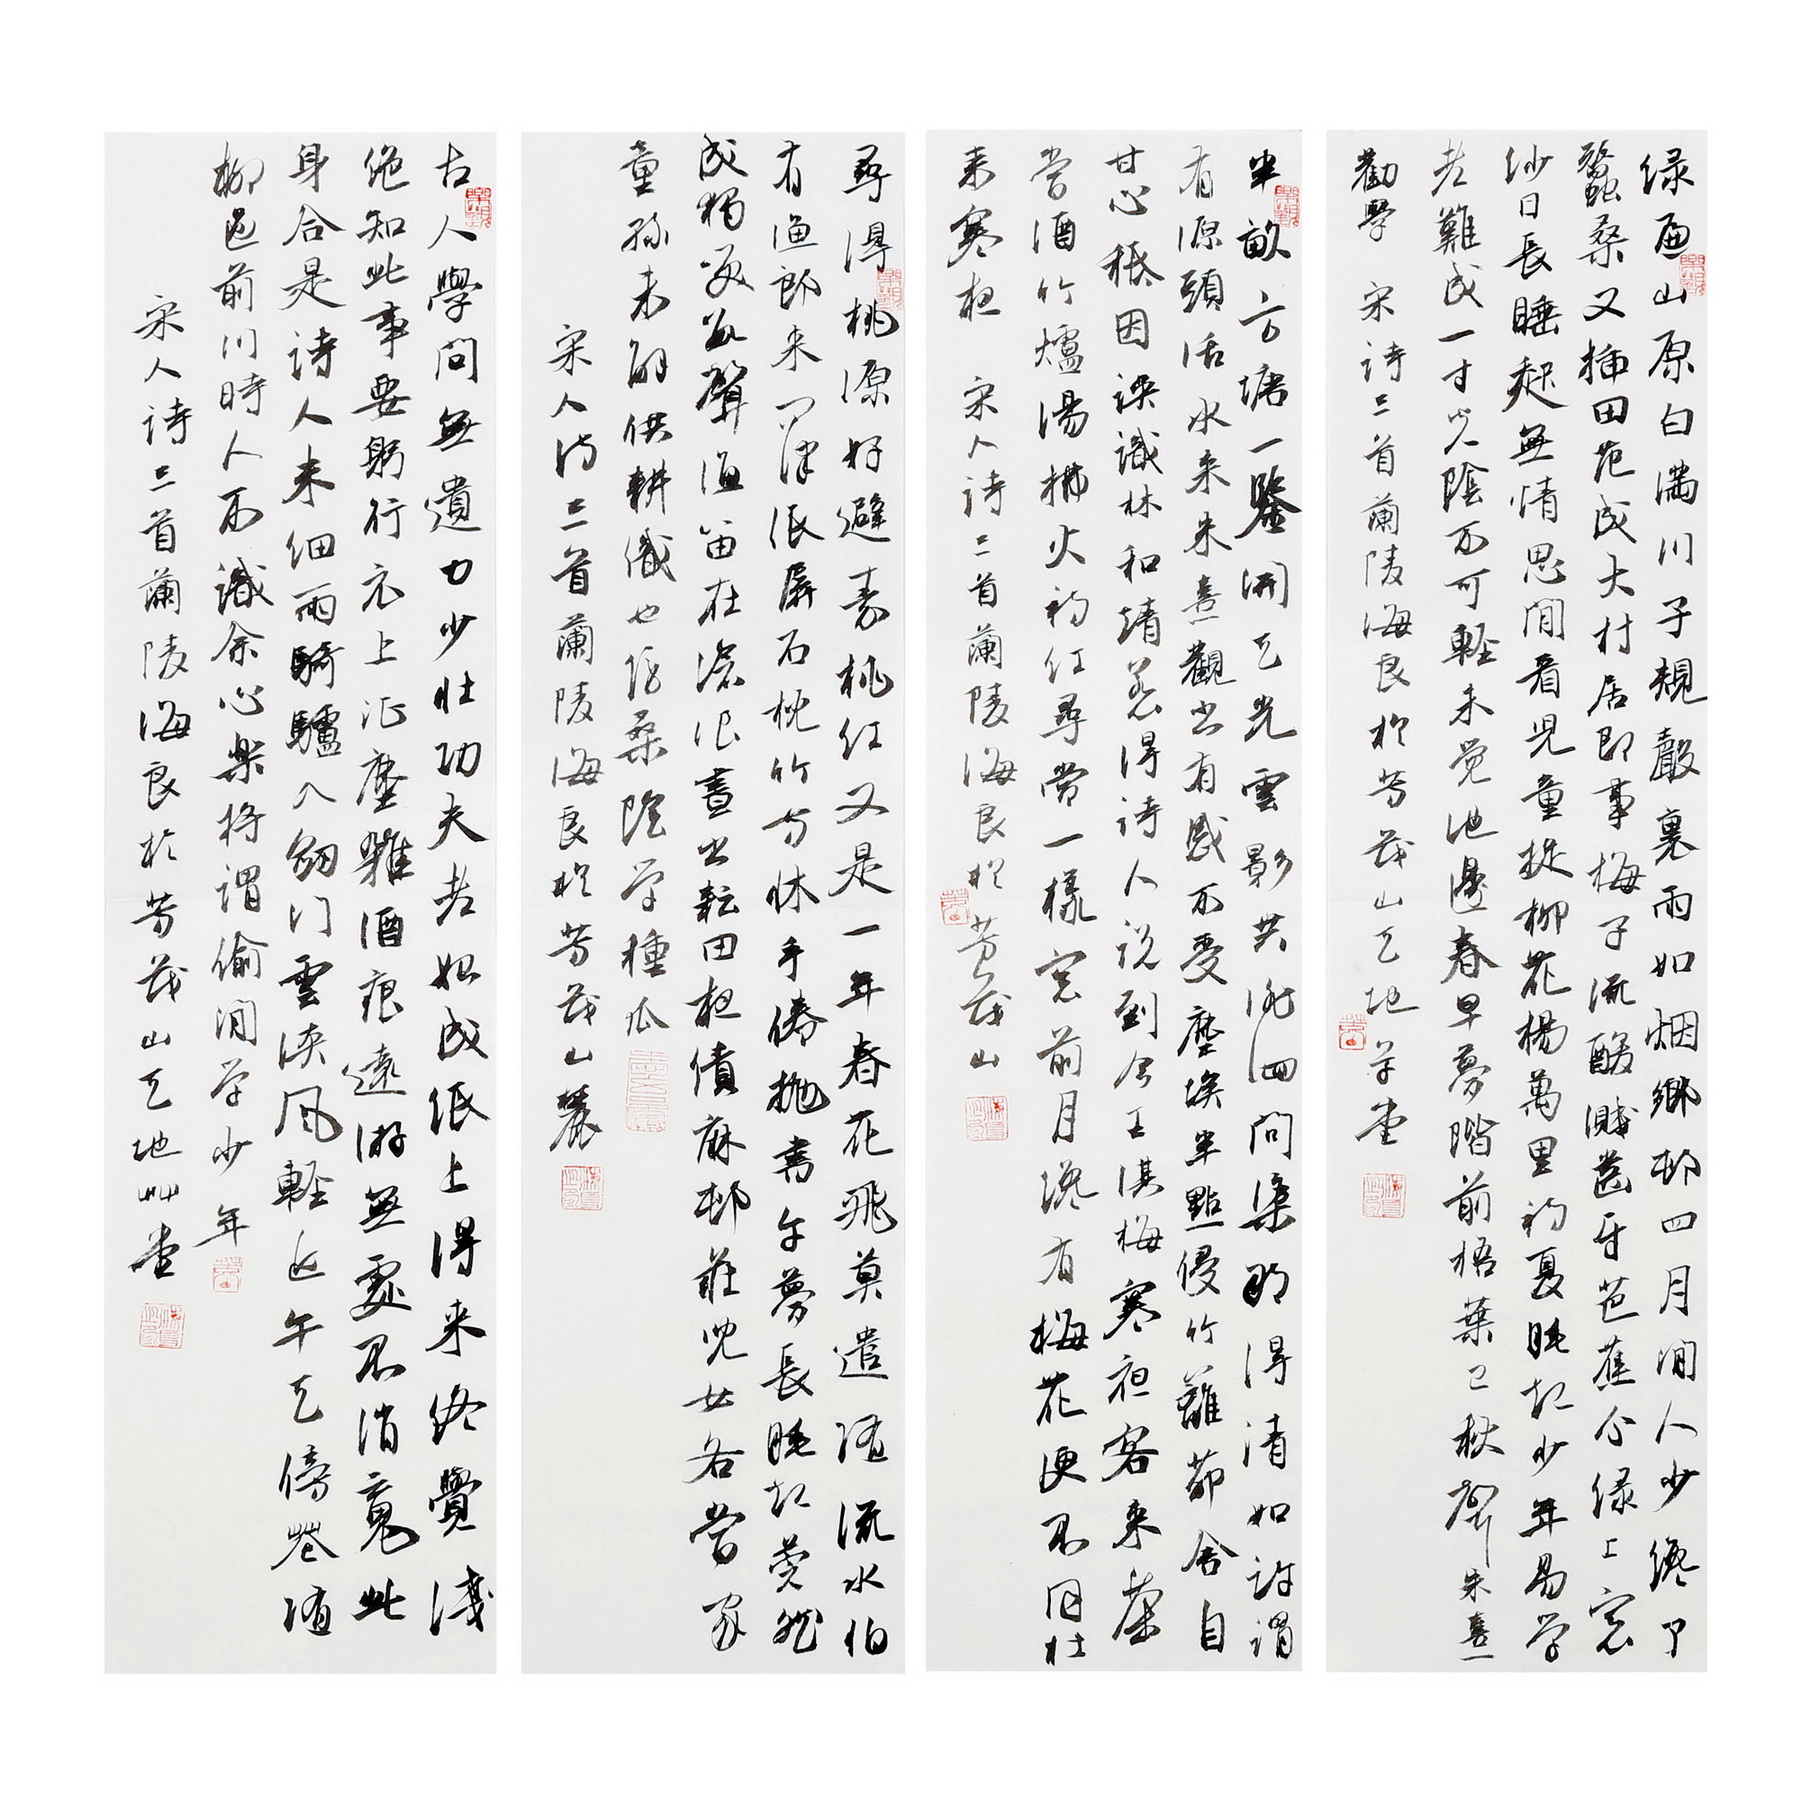 绿遍山原白满川子規聲裏雨如烟鄉邨四月闲人少纔了
蠶桑又插田范成大村居即事梅子流酸濺齒牙芭蕉分绿上窓
纱日長睡起無情思閒看児童捉柳花楊萬里初夏睡起少年易学
老難成一寸光陰不可輕未觉池邊春草夢階前梧葉已秋聲朱熹
勸學 宋詩三首蘭陵海良於芳茂山天地草堂
半畝方塘一鑒開天光雲影共徘徊問渠那得清如許謂
有源頭活水来朱熹觀书有感不受塵埃半點侵竹籬茆舍自
甘心祗因误識林和靖惹得詩人说到今王淇梅寒夜客来茶
當酒竹爐湯沸火初红尋常一樣窓前月纔有梅花便不同杜
耒寒夜 宋人詩三首蘭陵海良於芳茂山
尋得桃源好避秦桃红又是一年春花飛莫遣随流水怕
有漁郎来问津纸屏石枕竹方床手倦抛書午夢長睡起莞然
成獨笑数聲漁笛在滄浪晝出耘田夜績麻邨莊児女各當家
童孫未解供耕織也傍桑陰学種瓜
宋人诗三首蘭陵海良於芳茂山麓
古人學問無遺力少壮功夫老始成纸上得来终覺淺
绝知此事要躬行衣上征塵雜酒痕遠游無處不消魂此
身合是詩人未细雨騎驢入劒门雲淡风輕近午天傍花随
柳過前川時人不識余心樂将謂偷闲学少年
宋人詩三首蘭陵海良於芳茂山天地艸堂